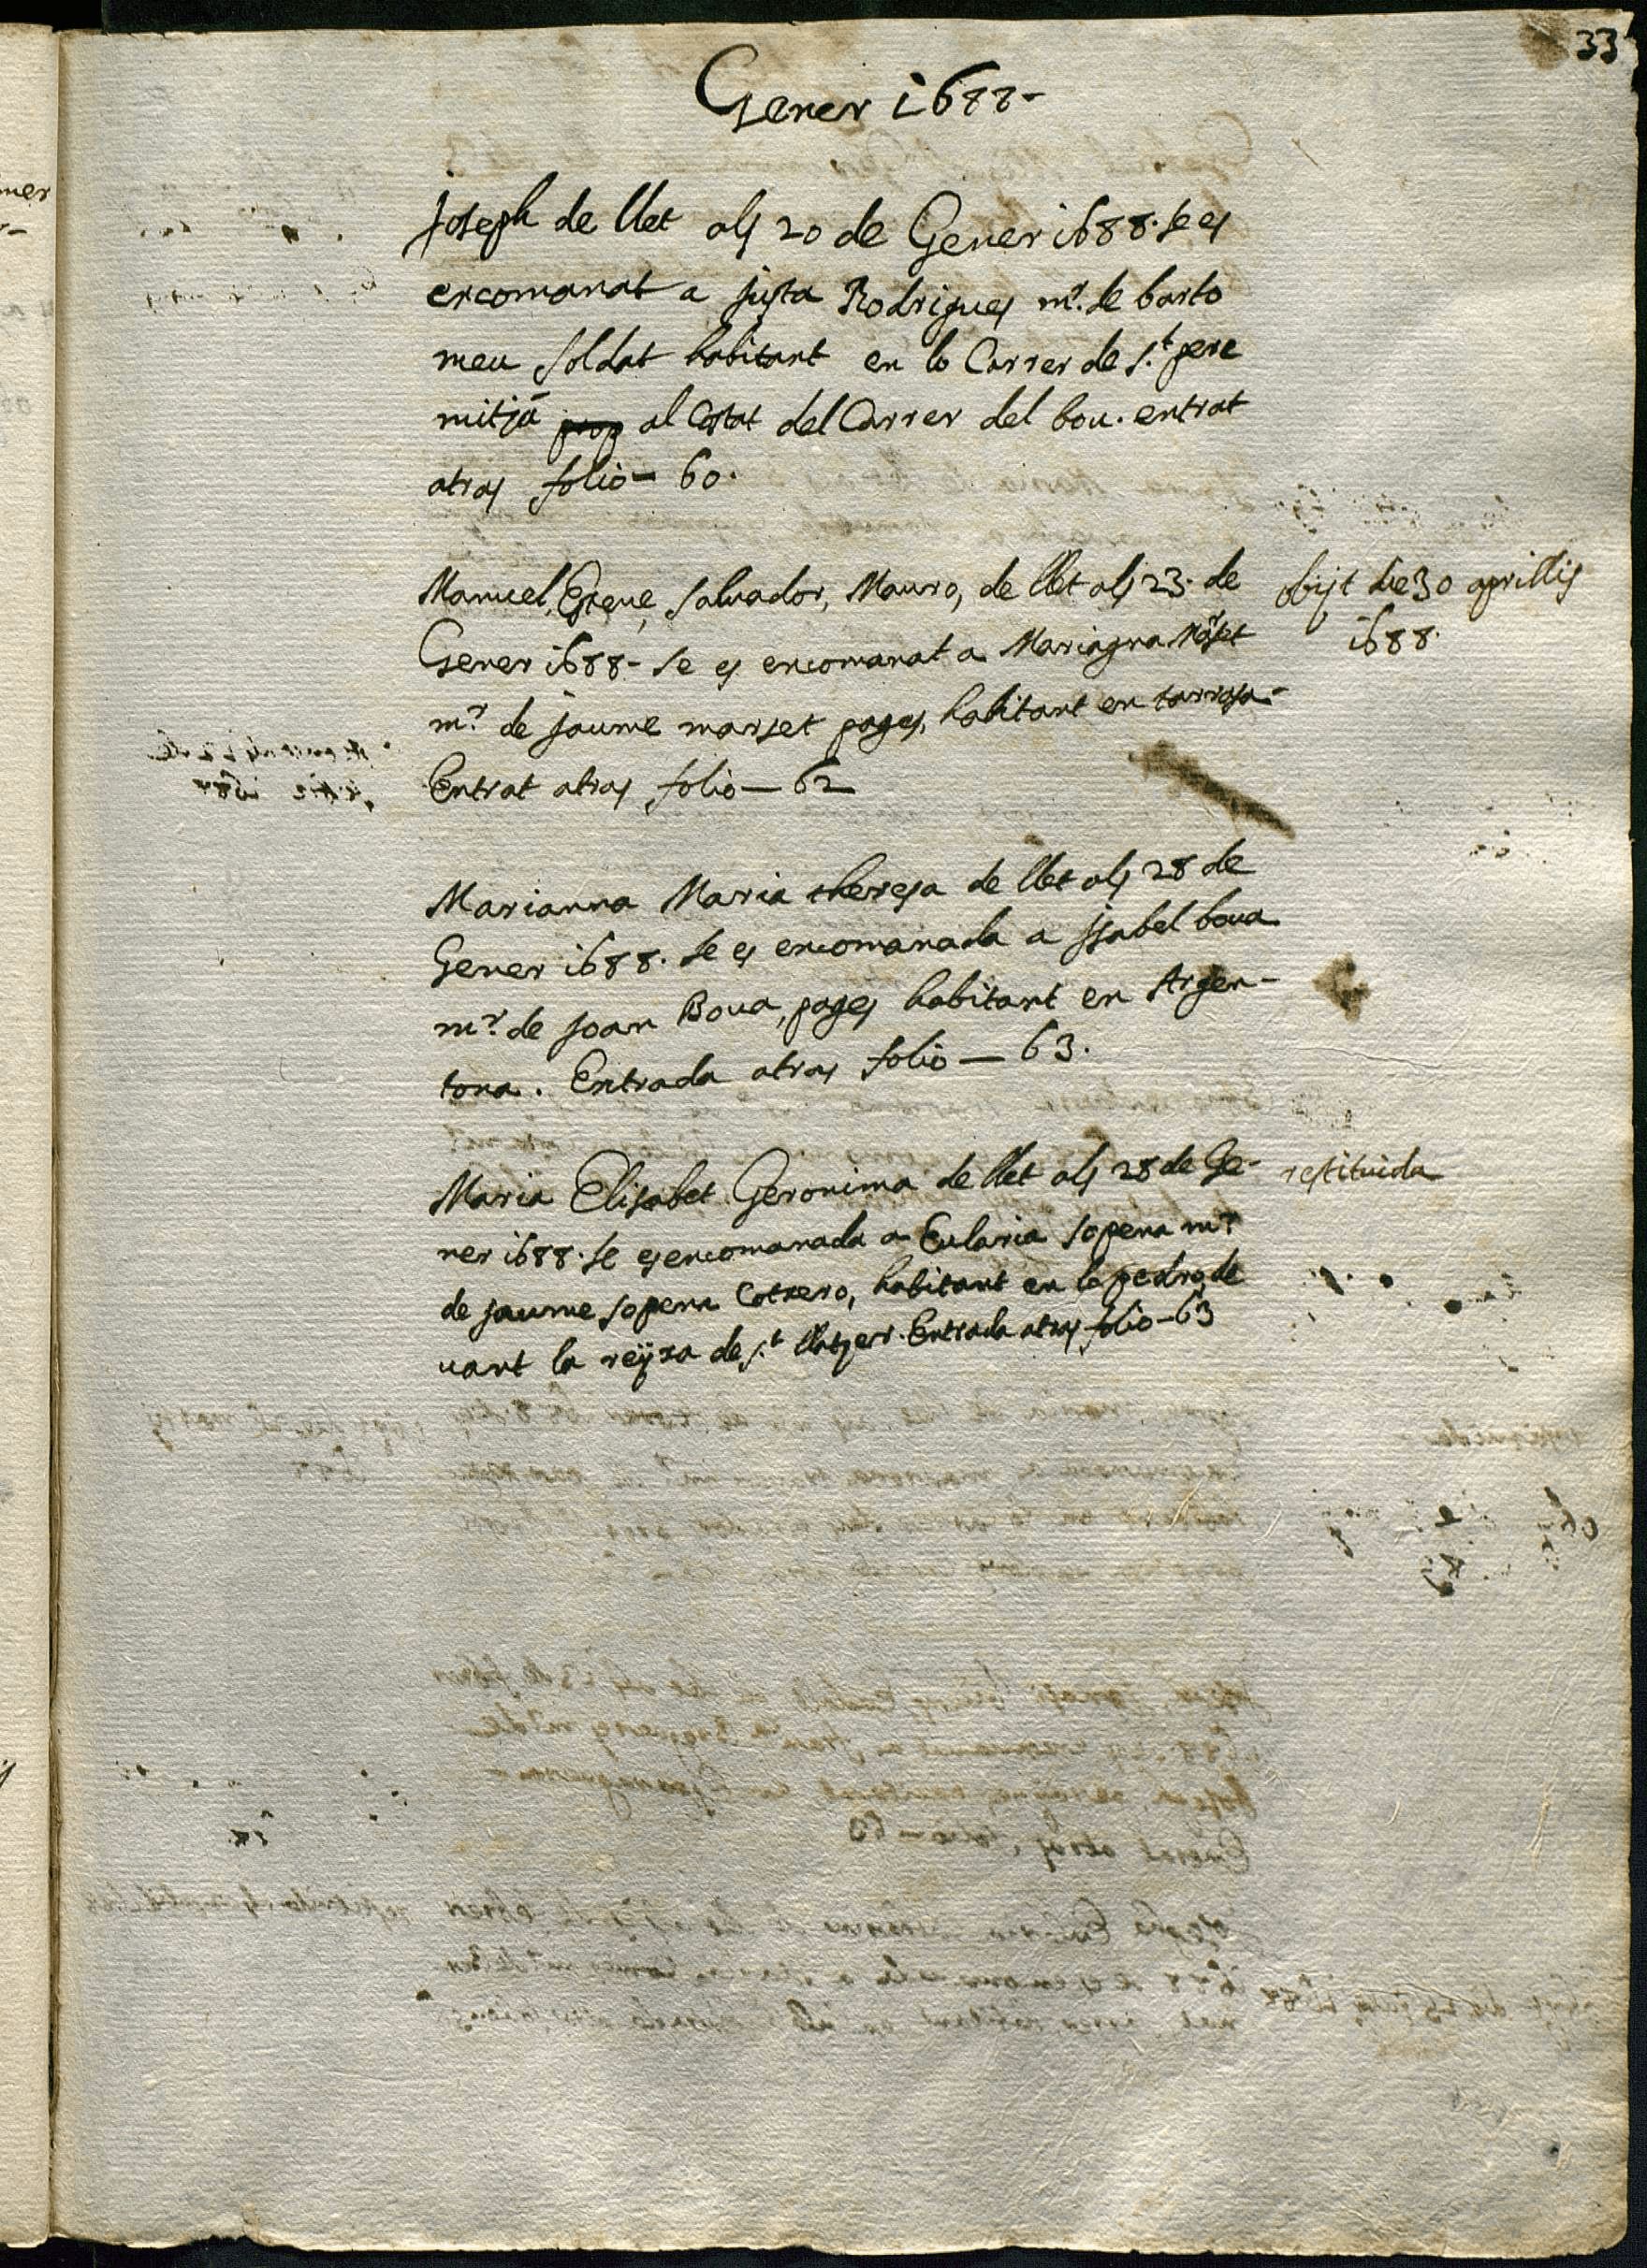 33
Gener 1688-
Joseph de llet als 20 de Gener 1688. se es
encomanat a justa Rodrigues mr. de barto
meu soldat habitant en lo Carrer de st. pere
mitjá prop al Costat del Carrer del bou. entrat
atras folio- 60.
Manuel, Esteve, Salvador, Mauro, de llet als 23. de
Gener 1688- se es encomanat a Mariagna
mr. de jaume marset pages, habitant en tarrasa-
Entrat atras folio- 62
obijt die 30 aprillis
1688.
Marianna Maria theresa de llet als 28 de
Gener 1688. se es encomanada a jsabel bova
mr. de joan Bova, pages habitant en Argen-
tona. Entrada atras folio- 63.
Maria Elisabet Geronima de llet als 28 de Ge-
ner 1688. se es encomanada a Eularia sopena mr.
de jaume sopena Cotxero, habitant en lo pedro de
vant la reÿxa de st. llatzer. Entrada atras folio- 63
restituida